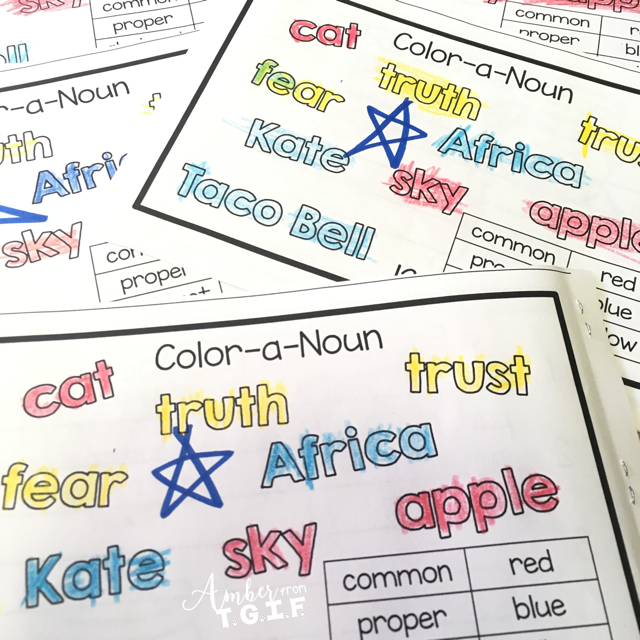 common
Color-a-Noun
cat
truth
fear
Kate
Africa
sky
Taco Bell
common
red
blue
Color-a-Noun
sky
proper
Color-a-Noun
cat
truth
trust
fear
Africa
apple
Kate
sky
common red
proper blue
Amber from
T.G.I.F